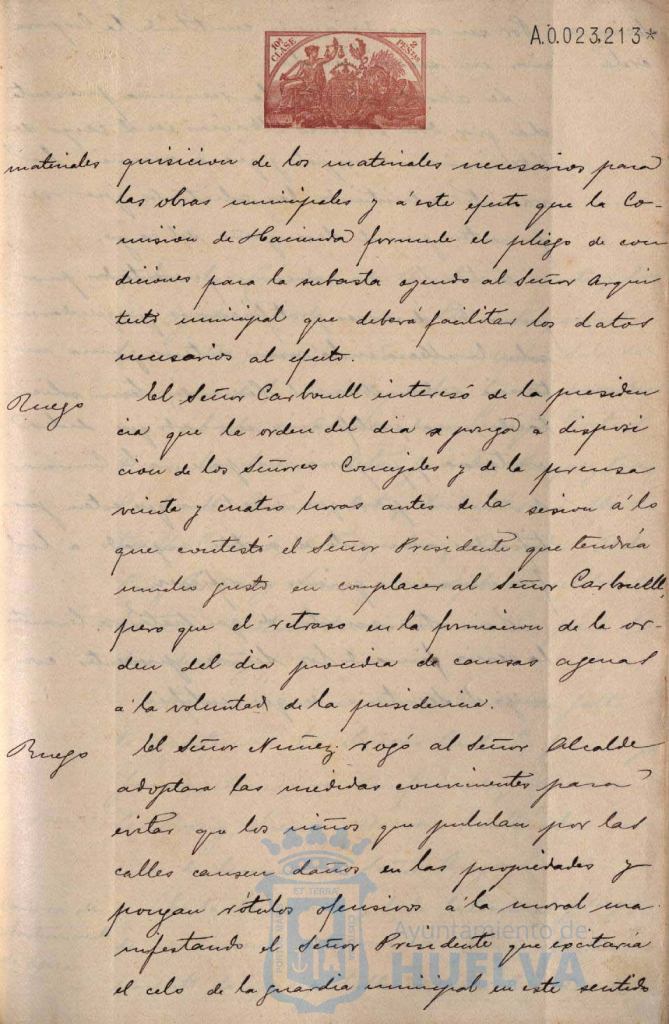 10ª CLASE
2 PESETAS
A.0.023.213*
materiales
quisicion de los materiales necesarios para
las obras municipales y á este efecto que la Co-
mision de Hacienda formule el pliego de con
diciones para la subasta oyendo al Señor Arqui
tecto municipal que deberá facilitar los datos
necesarios al efecto.
Ruego
El Señor Carbonell interesó de la presiden
cia que la orden del dia se ponga á disposi
cion de los Señores Concejales y de la prensa
veinte y cuatro horas antes de la sesion á lo
que contestó el Señor Presidente que tendria
mucho gusto en complacer al Señor Carbonell,
pero que el retraso en la formacion de la or-
den del dia procedia de causas agenas
á la voluntad de la presidencia.
Ruego
El Señor Nuñez rogó al Señor Alcalde
adoptara las medidas convenientes para
evitar que los niños que pululan por las
calles causen daños en las propiedades y
pongan rótulos ofensivos á la moral ma
nifestando el Señor Presidente que excitaria
el celo de la guardia municipal en este sentido
Ayuntamiento de
HUELVA